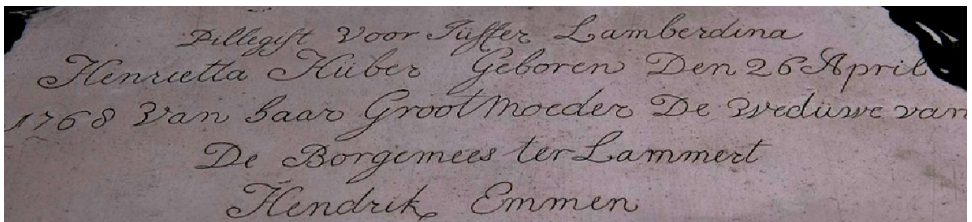 Pillegift Voor Juffer Lamberdina
Henrietta Hüber Geboren Den 26 April
1768 Van haar Groot Moeder De Weduwe van
De Borgemees ter Lammert
Hendrik Emmen